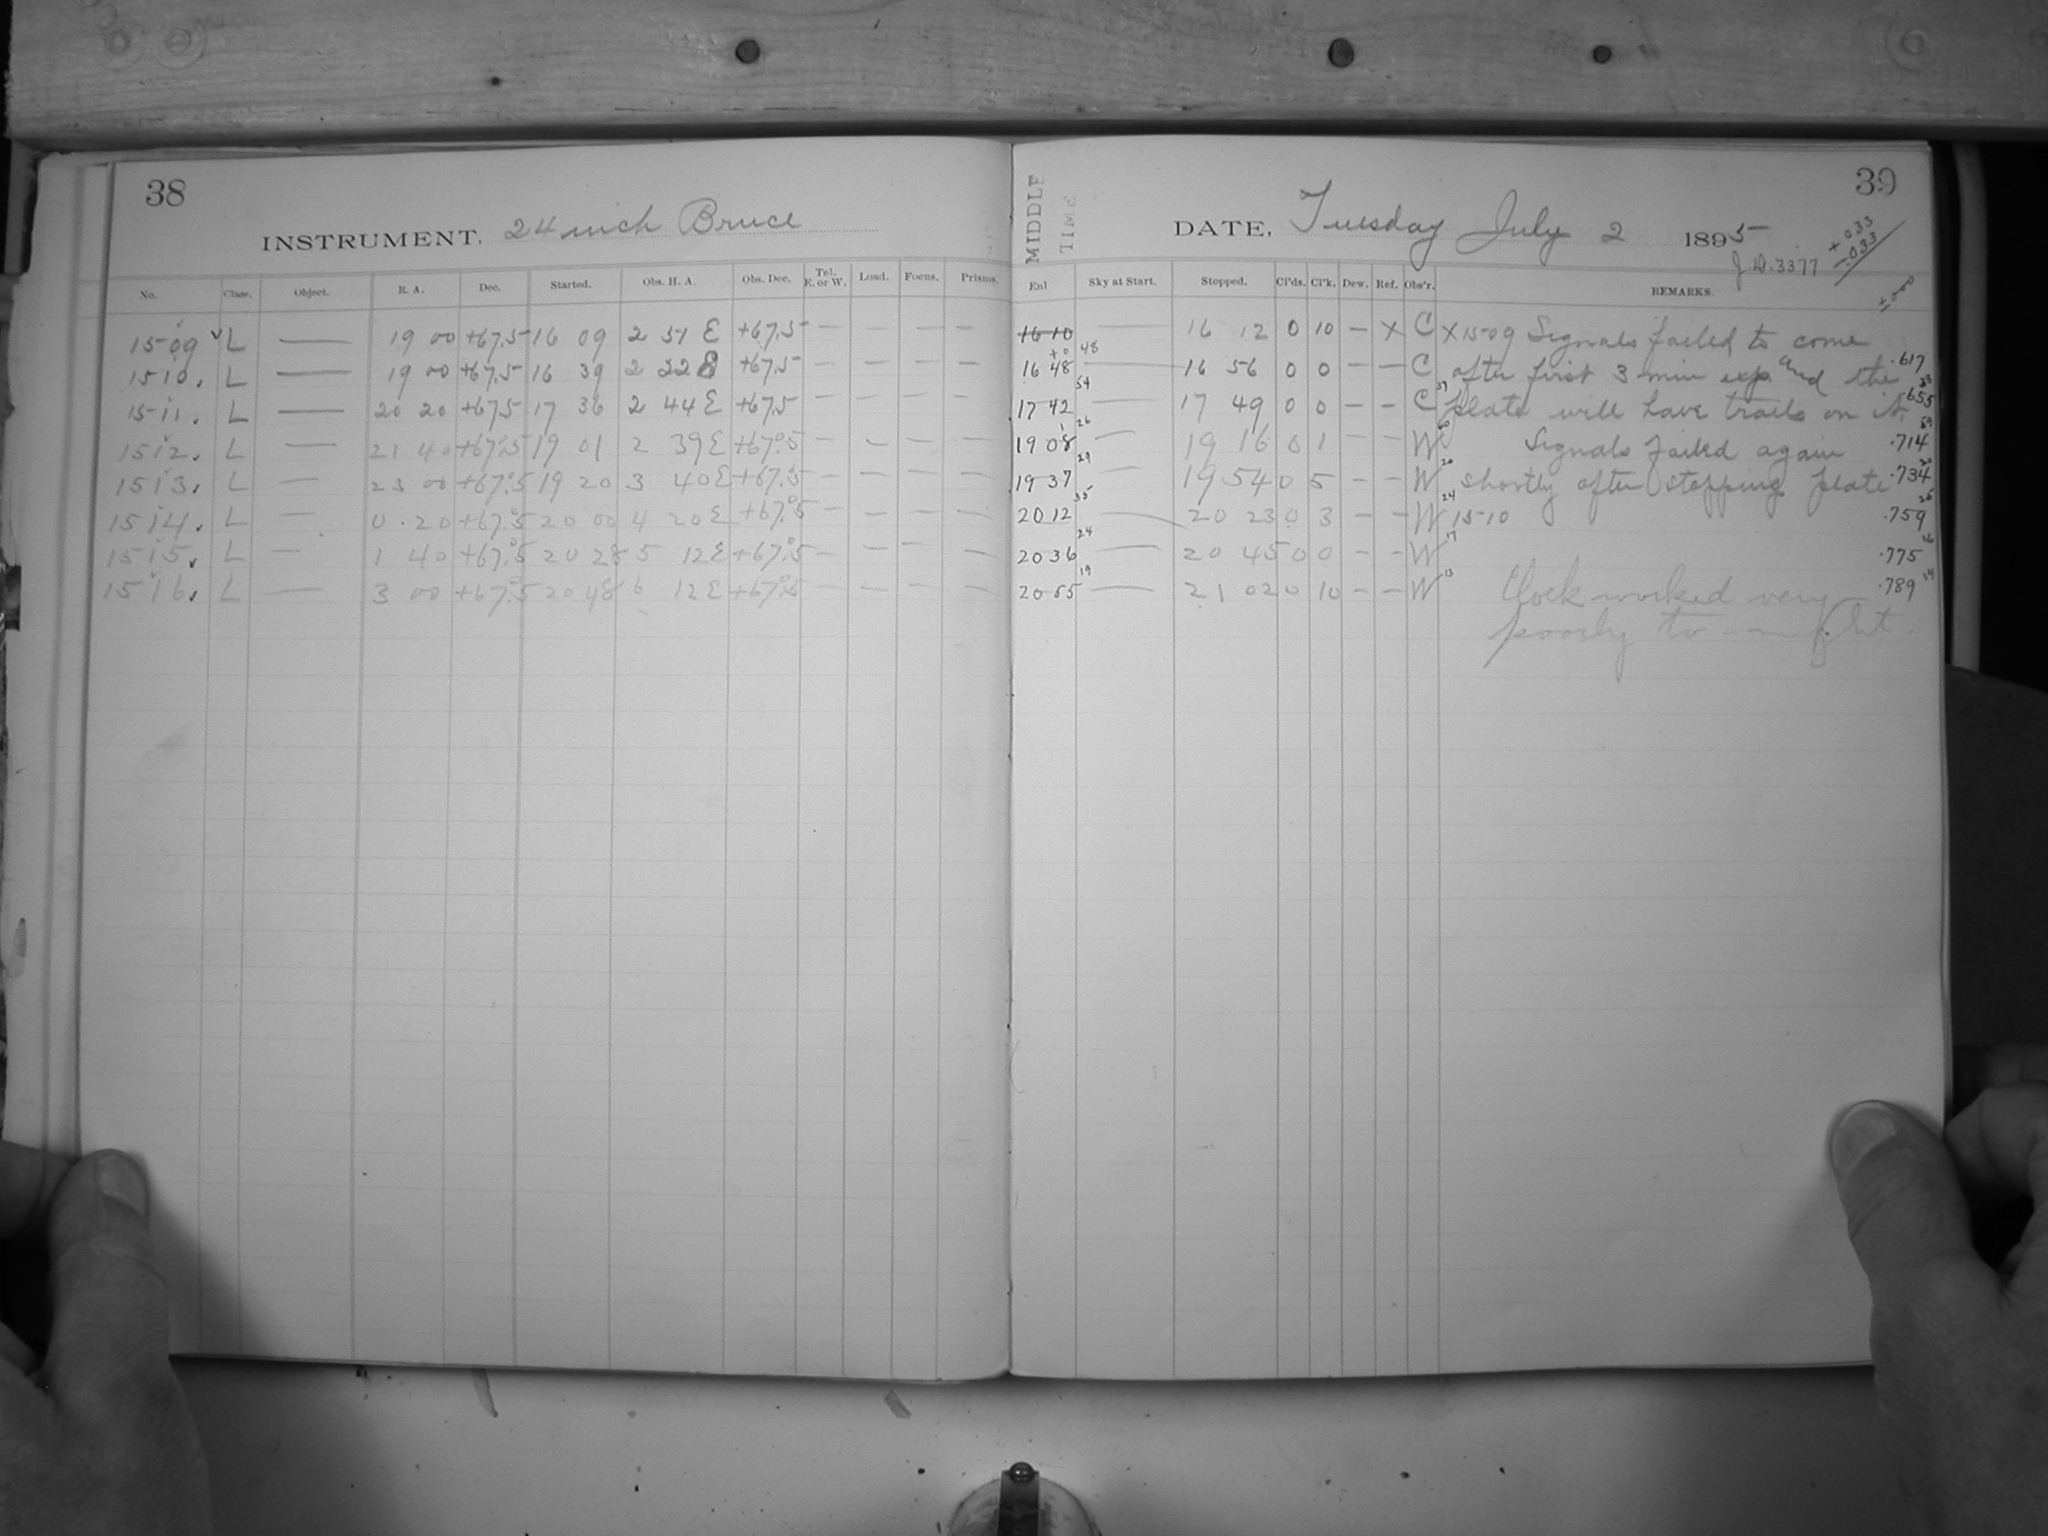 38
INSTRUMENT, 24 inch Bruce
No. Class. Object. R. A. Dec. Started. Obs. H. A. Obs. Dec. Tel. E. or W. Load. Focus. Prisms.
1509 L — 19 00 +67.5 16 09 2 51 E +67.5 — — — —
1510. L — 19 00 +67.5 16 39 2 22 E +67.5 — — — —
1511. L — 20 20 +67.5 17 36 2 44 E +67.5 — — — —
1512. L — 21 40 +67°.5 19 01 2 39 E +67°.5 — — — —
1513. L — 23 00 +67°.5 19 20 3 40 E +67°.5 — — — —
1514. L — 0.20 +67°.5 20 00 4 20 E +67°.5 — — — —
1515. L — 1 40 +67°.5 20 28 5 12 E +67°.5 — — — —
1516. L — 3 00 +67°.5 20 48 6 12 E +67°.5 — — — —
39
MIDDLE TIME
DATE, Tuesday July 2 1895
J.D. 3377
+.033
-.033
±.000
Enl Sky at Start. Stopped. Cl'ds. Cl'k. Dew. Ref. Obs'r. REMARKS.
16 10 — 16 12 0 10 — X C X 1509 Signals failed to come
16 48 48 — 16 56 0 0 — — C after first 3 min exp. and the .617
17 42 54 — 17 49 0 0 — — C 37 plate will have trails on it. .655
19 08 26 — 19 16 0 1 — — W 60 Signals failed again .714
19 37 29 — 19 54 0 5 — — W 20 shortly after stopping plate .734
20 12 35 — 20 23 0 3 — — W 24 1510 .759
20 36 24 — 20 45 0 0 — — W 17 .775 16
20 55 19 — 21 02 0 10 — — W 13 Clock worked very .789 14
poorly to-night.